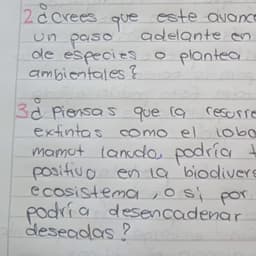 2 ¿crees que este avanc
un paso adelante en
de especies o plantea
ambientales?
3 ¿ Piensas que la resurre
extintas como el lobo
mamut lanudo, podría
positivo en la biodivers
ecosistema, o si por
podría desencadenar
deseadas?